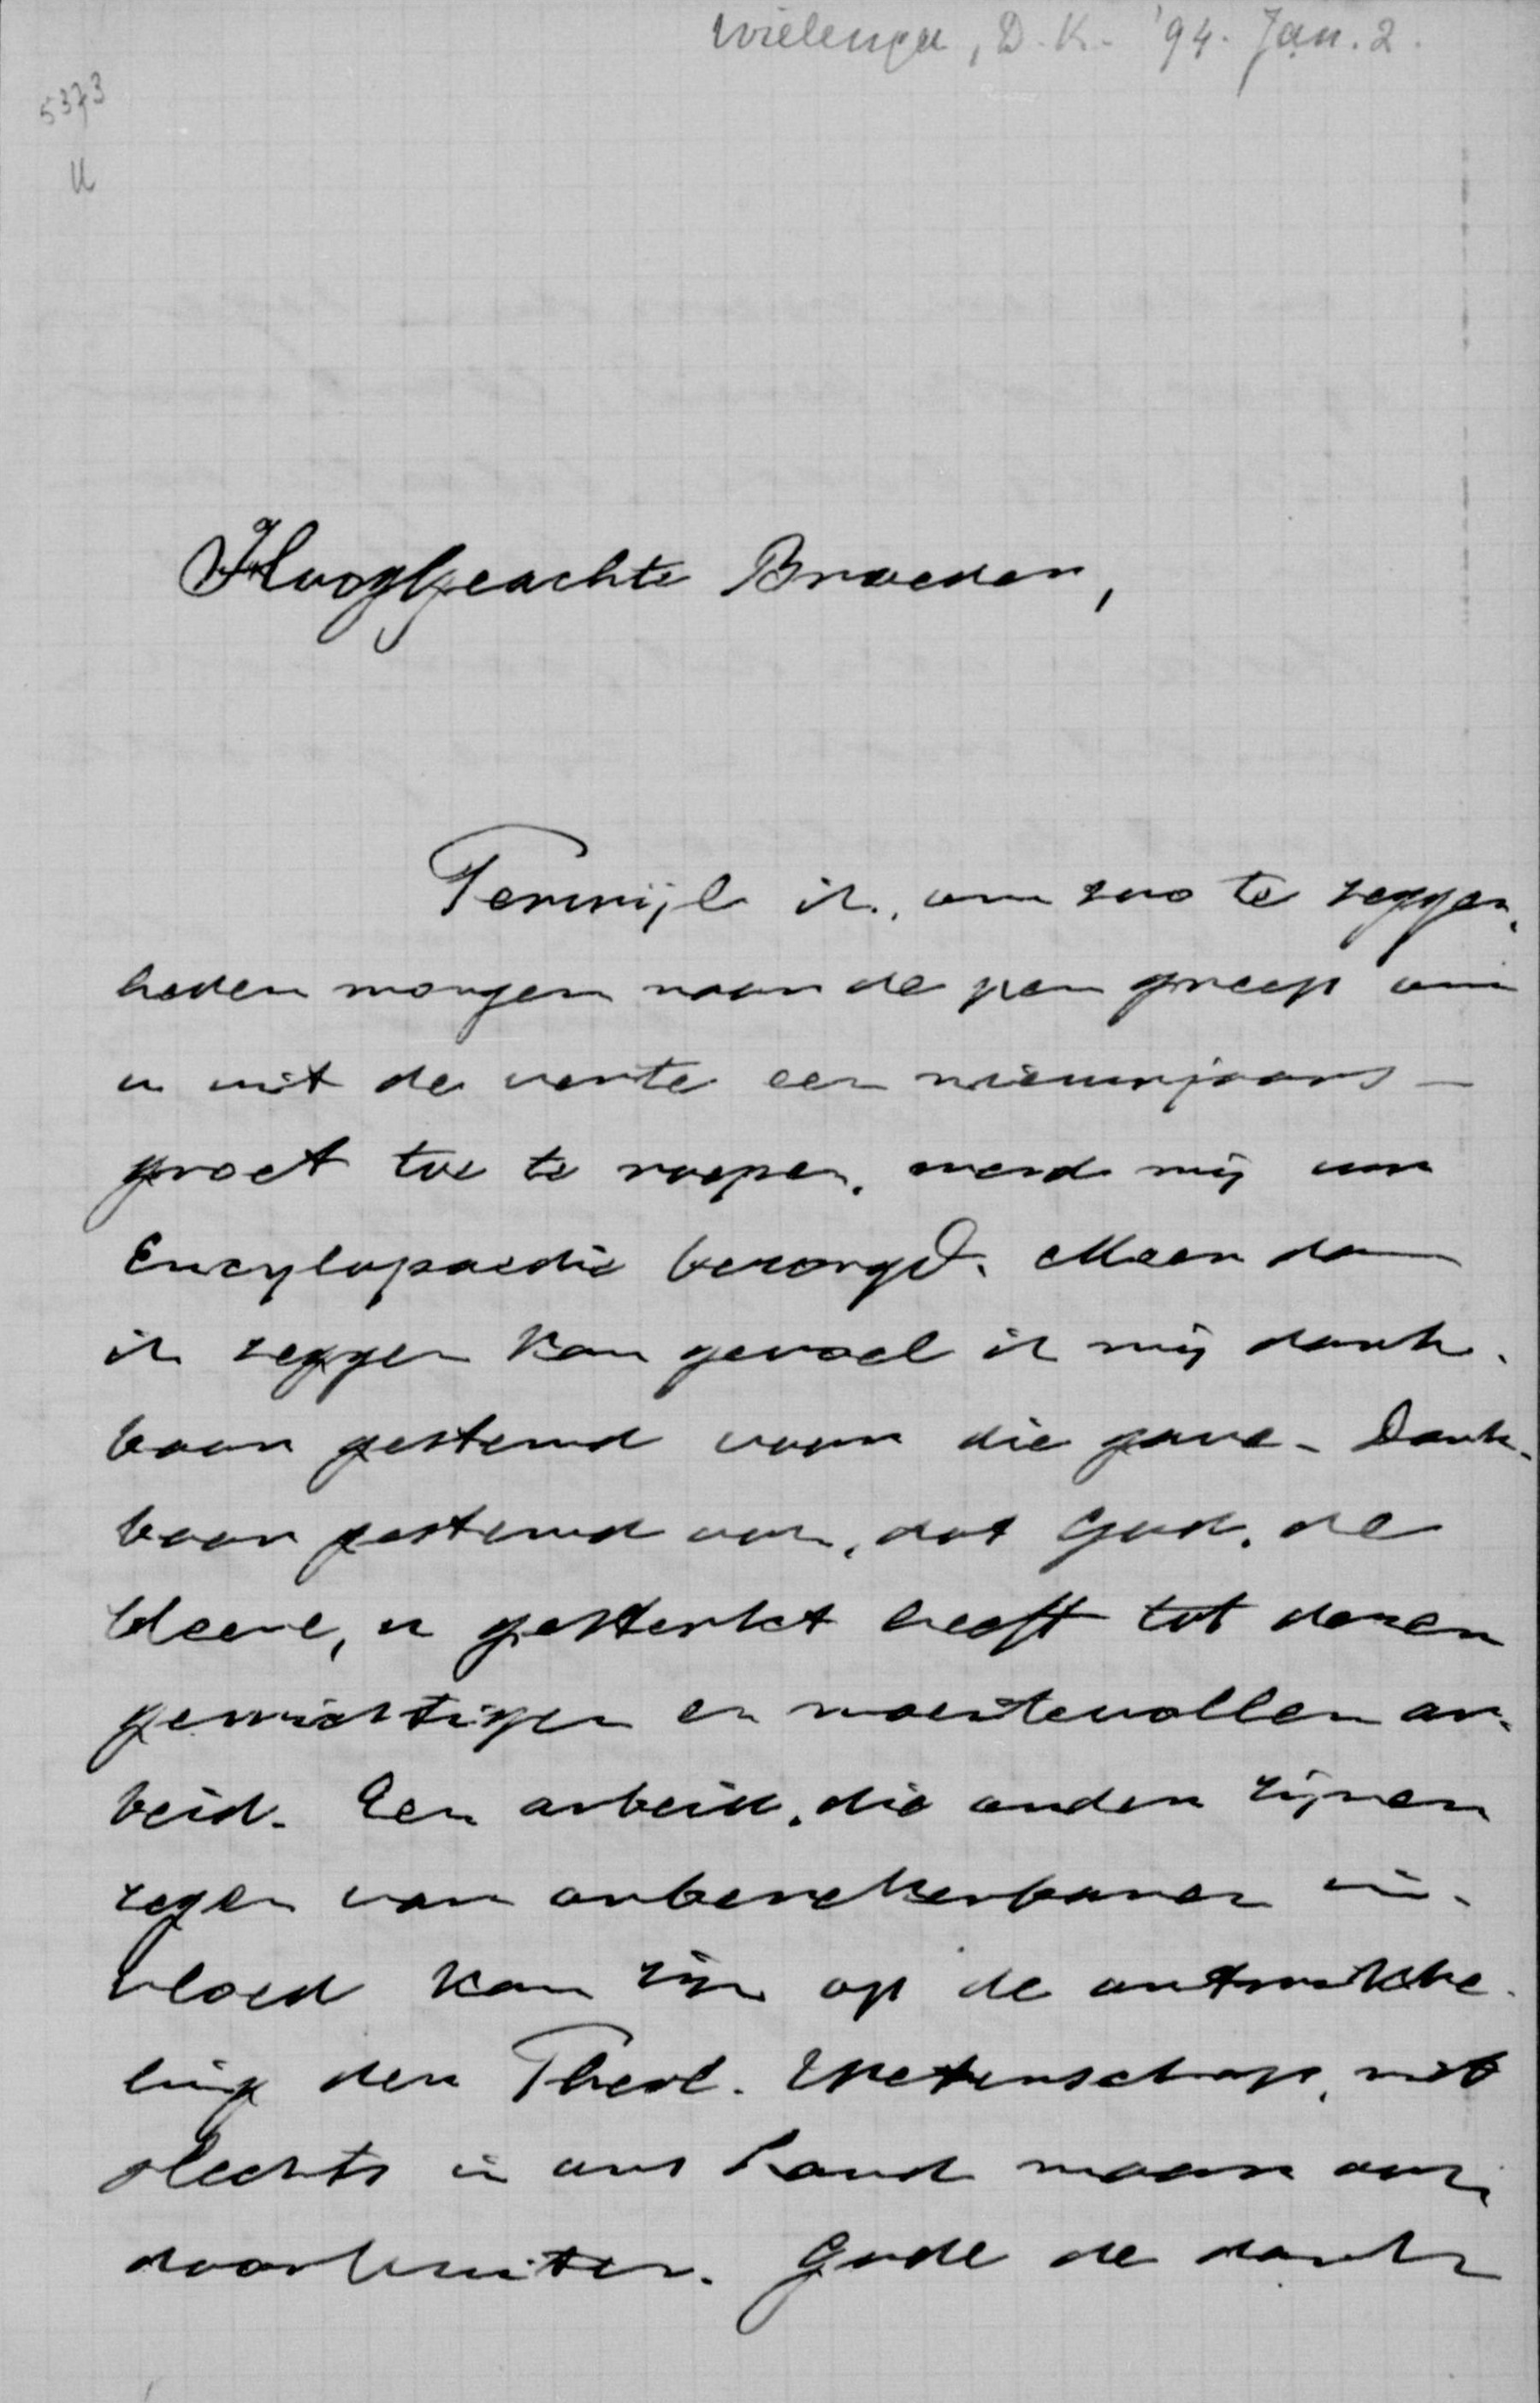 Wielenga, D.K. '94. Jan. 2.
5373
U
Hooggeachte Broeder,
Terwijl ik, om zoo te zeggen,
heden morgen naar de pen greep om
u uit de verte een nieuwjaars-
groet toe te roepen, werd mij uw
Encyclopaedie bezorgd. Meer dan
ik zeggen kan gevoel ik mij dank-
baar gestemd voor die gave. Dank-
baar gestemd ook, dat God, de
Heere, u gesterkt heeft tot dezen
gewichtigen en moeitevollen ar-
beid. Een arbeid, die onder zijnen
zegen van onberekenbaren in-
vloed kan zijn op de ontwikke-
ling der Theol. Wetenschap, niet
slechts in ons Land maar ook
daarbuiten. Gode de dank